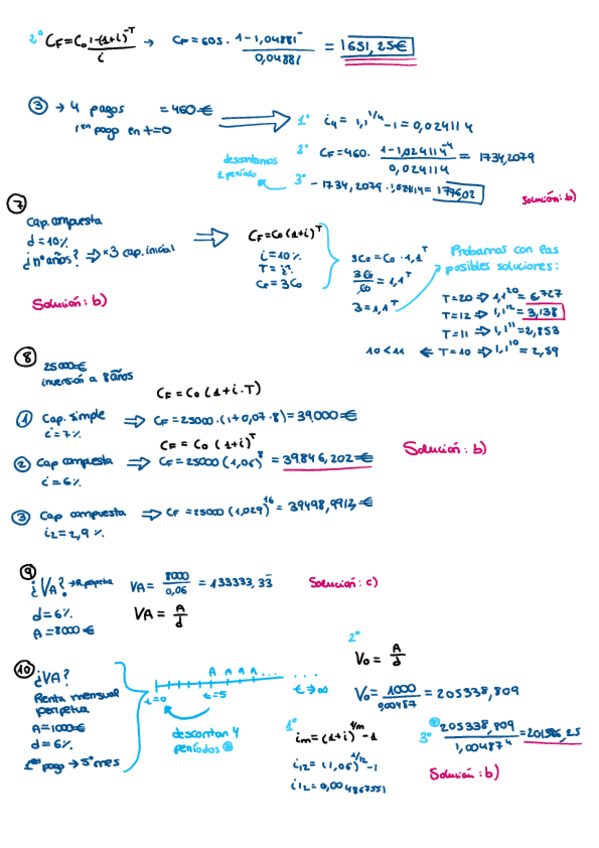 2º CF = C0 1-(1+i)^-T / i → CF = 605 · 1 - 1,04881^- / 0,04881 = 1651,25€
③ → 4 pagos = 460€
1er pago en t=0
1º i4 = 1,1^1/4 - 1 = 0,024114
2º CF = 460 · 1 - 1,024114^-4 / 0,024114 = 1734,2079
descontamos
1 período
3º - 1734,2079 · 1,024114 = 1776,02
Solución: b)
⑦
Cap. compuesta
d = 10%
¿nº años? ⇒ ×3 cap. inicial
Solución: b)
CF = C0 (1+i)^T
i = 10%
T = ¿?
CF = 3C0
3C0 = C0 · 1,1^T
3C0 / C0 = 1,1^T
3 = 1,1^T
Probamos con las
posibles soluciones:
T=20 ⇒ 1,1^20 = 6,727
T=12 ⇒ 1,1^12 = 3,138
T=11 ⇒ 1,1^11 = 2,853
10<11 ← T=10 ⇒ 1,1^10 = 2,59
⑧
25000€
inversión a 8 años
CF = C0 (1+i·T)
① Cap. simple ⇒ CF = 25000 · (1+0,07·8) = 39000€
i = 7%
CF = C0 (1+i)^T
② Cap compuesta ⇒ CF = 25000 (1,06)^8 = 39846,202€
i = 6%
Solución: b)
③ Cap compuesta ⇒ CF = 25000 (1,029)^16 = 39498,9913€
i2 = 2,9%
⑨
¿VA? → R. perpetua VA = 8000 / 0,06 = 133333,33
Solución: c)
d = 6%
A = 8000€
VA = A / d
⑩
¿VA?
Renta mensual
perpetua
A = 1000€
d = 6%
1er pago → 5º mes
A A A A...
t=0 t=5 t→∞
descontan 4
períodos
1º
im = (1+i)^1/m - 1
i12 = (1,06)^1/12 - 1
i12 = 0,004867551
2º
V0 = A / d
V0 = 1000 / 0,00487 = 205338,809
3º 205338,809 / 1,00487^4 = 201386,25
Solución: b)